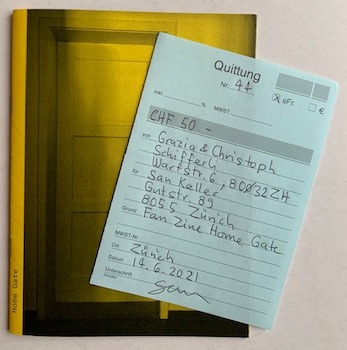 Home Gate
Quittung
Nr. 44
inkl. % MWST
☒ sFr. ☐ €
CHF 50.-
von Grazia & Christoph
Schifferli
Wartstr. 6, 80Ø32 ZH
für San Keller
Gutstr. 89
8055 Zürich
Grund Fan Zine Home Gate
MWST-Nr.
Ort Zürich
Datum 14.6.2021
Unterschrift